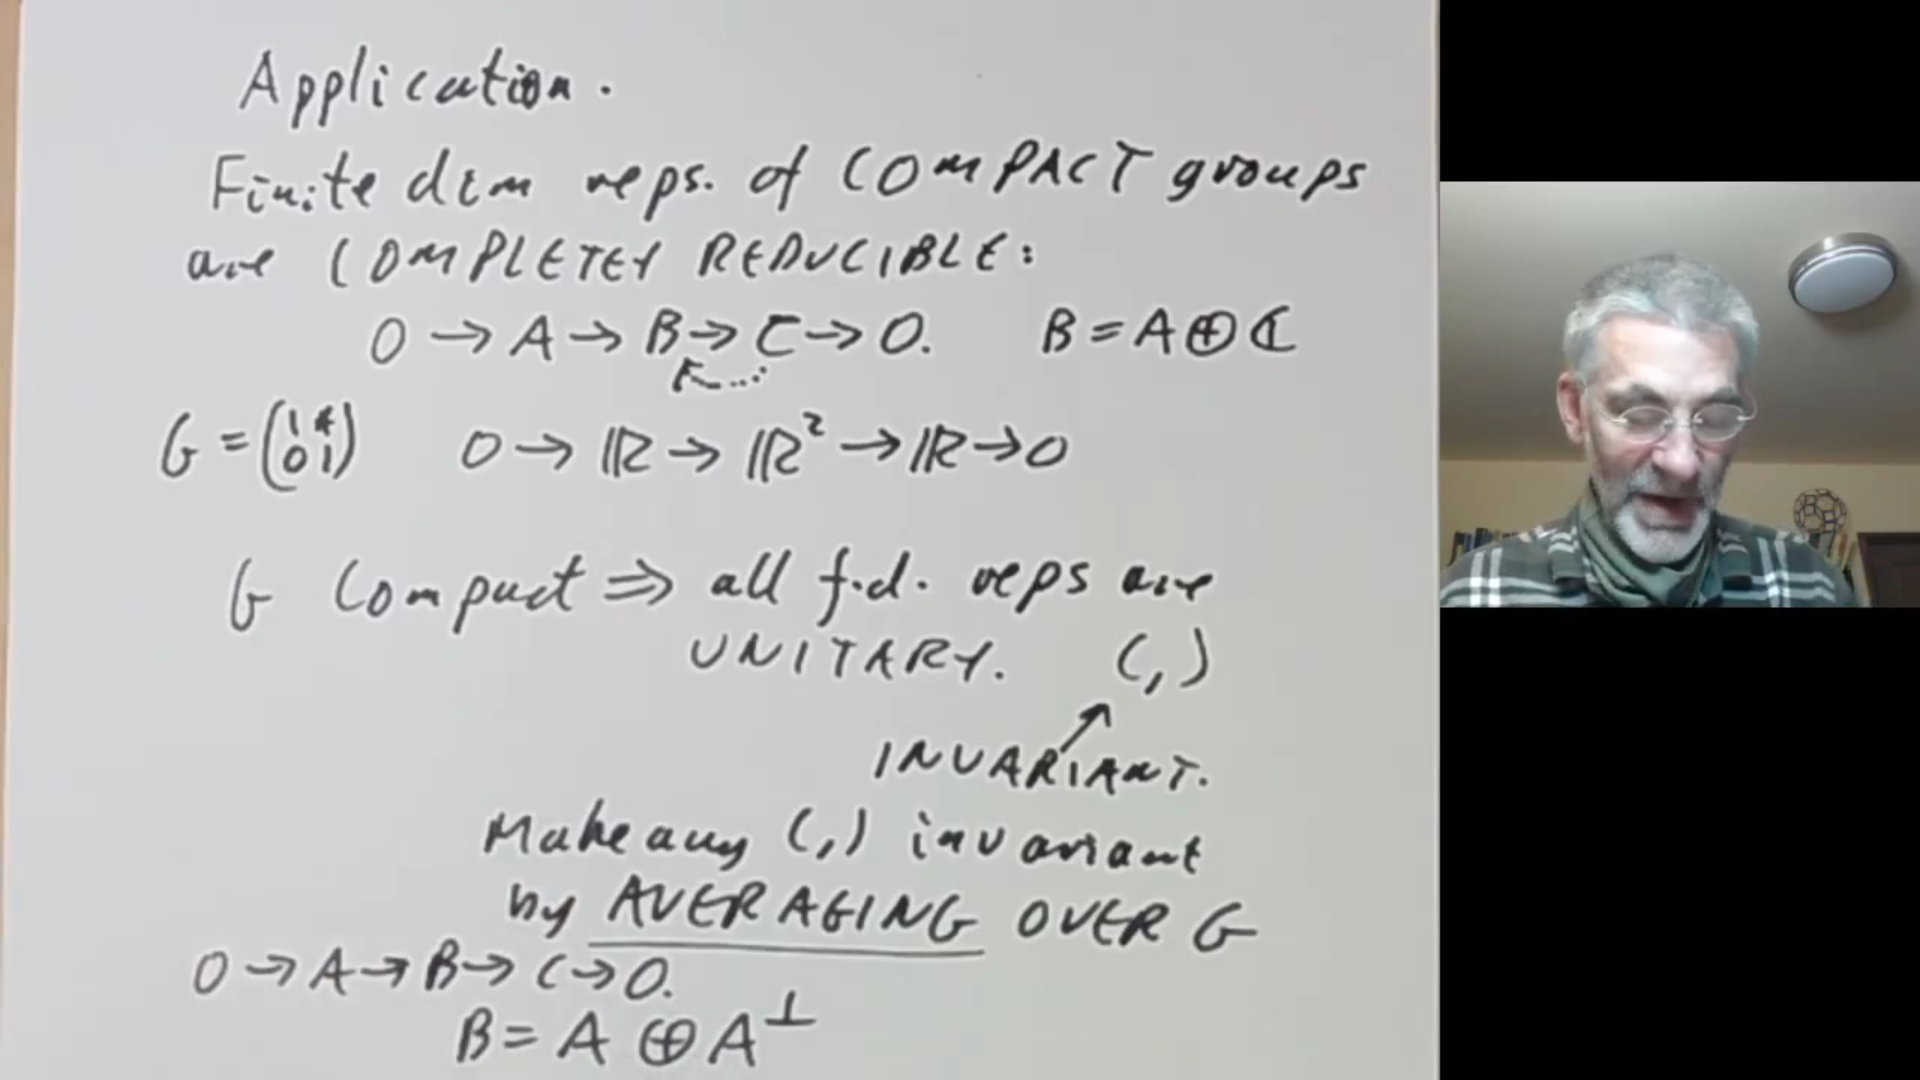 Application.
Finite dim reps. of COMPACT groups
are COMPLETEY REDUCIBLE:
0 → A → B → C → 0. B = A ⊕ C
G = (1 * 0 1) 0 → ℝ → ℝ² → ℝ → 0
G Compact ⇒ all f.d. reps are
UNITARY. (,)
INVARIANT.
Make any (,) invariant
by AVERAGING OVER G
0 → A → B → C → 0.
B = A ⊕ A^⊥